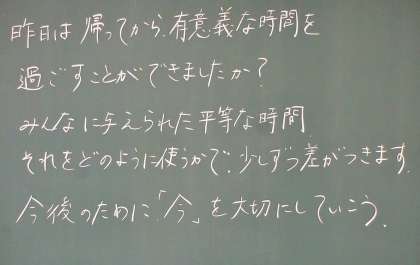 昨日は帰ってから、有意義な時間を
過ごすことができましたか?
みんなに与えられた平等な時間
それをどのように使うかで、少しずつ差がつきます。
今後のために「今」を大切にしていこう。